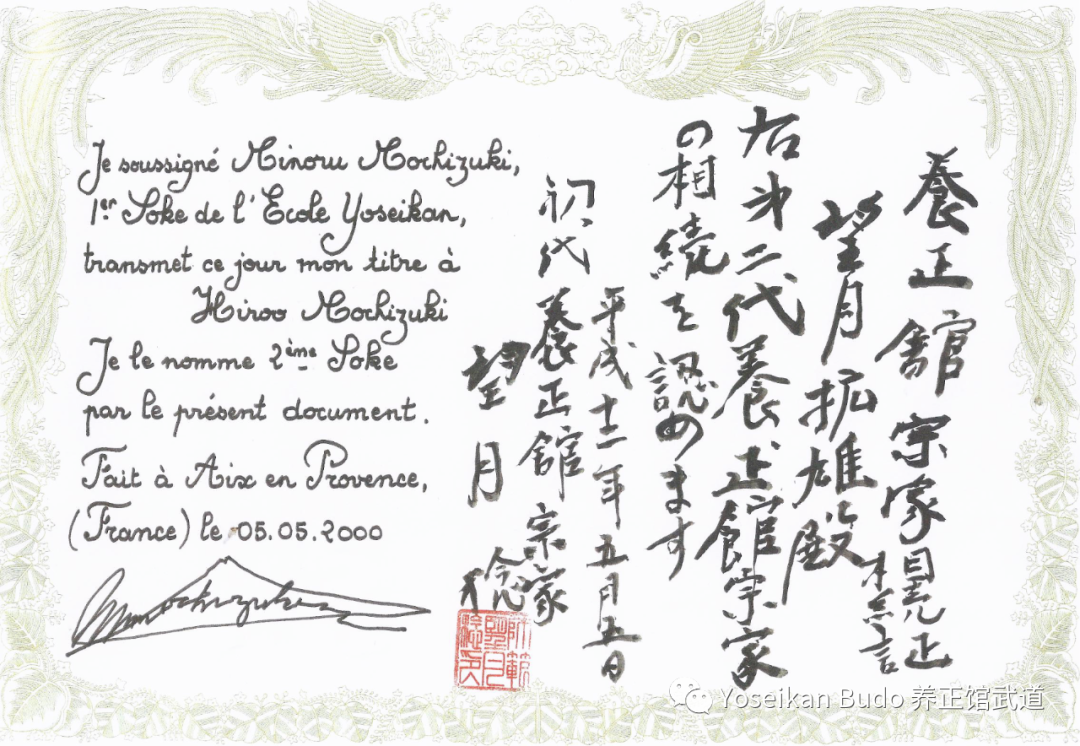 Je soussigné Minoru Mochizuki,
1er Soke de l'École Yoseikan,
transmet ce jour mon titre à
Hiroo Mochizuki
Je le nomme 2ème Soke
par le présent document.
Fait à Aix en Provence,
(France) le 05.05.2000
養正館宗家
望月拡雄殿
右第二代養正館宗家
の相続を認めます
平成十二年五月五日
初代養正館宗家
望月稔
Yoseikan Budo 养正馆武道